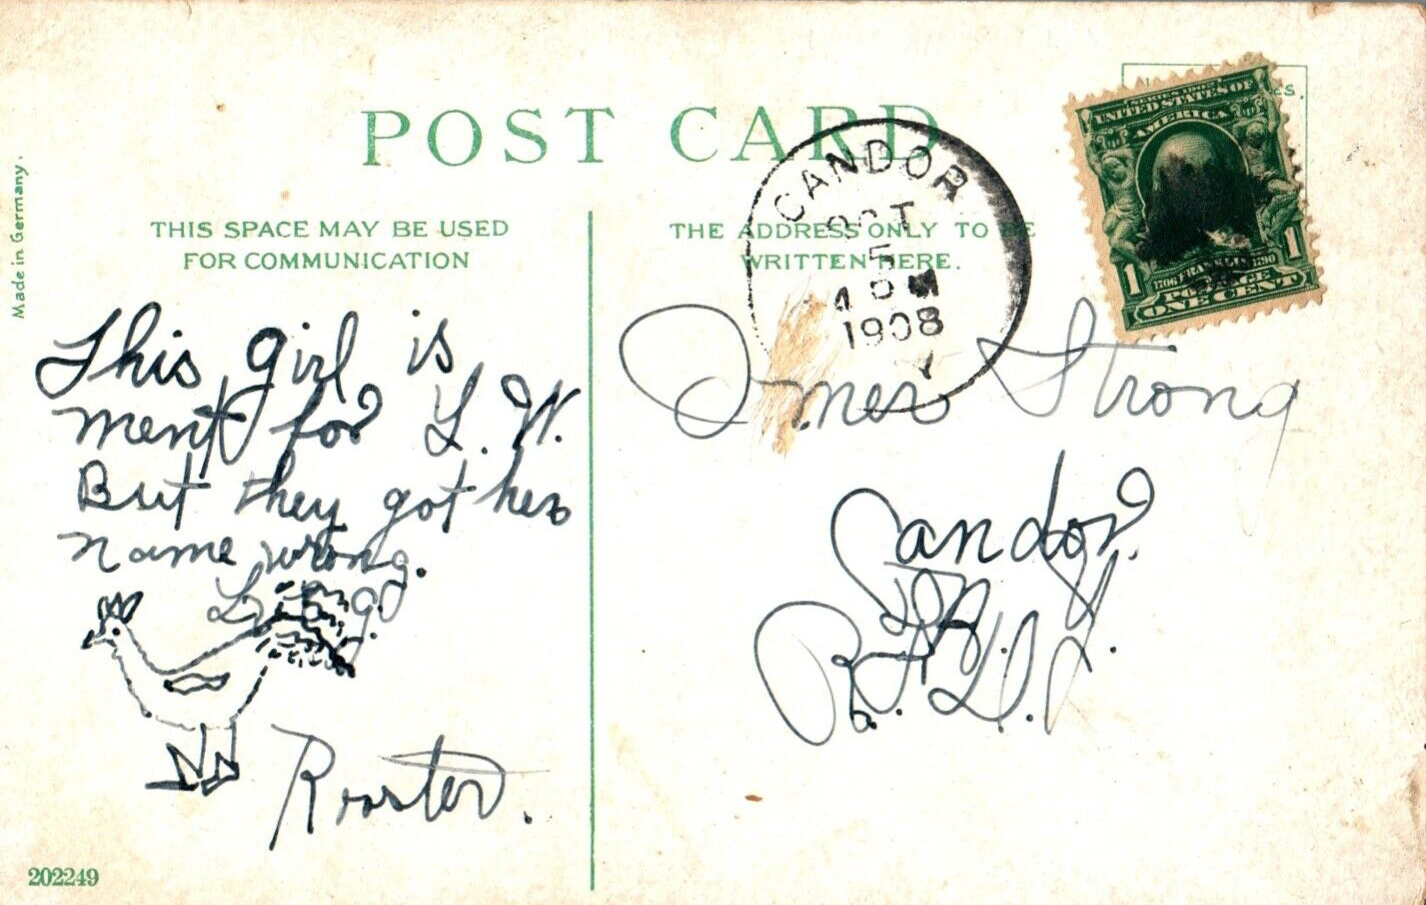 POST CARD
Made in Germany.
THIS SPACE MAY BE USED
FOR COMMUNICATION
THE ADDRESS ONLY TO BE
WRITTEN HERE.
CANDOR
OCT
5
4 PM
1908
UNITED STATES OF
AMERICA
1706 FRANKLIN 1790
1 POSTAGE 1
ONE CENT
This girl is
ment for L. W.
But they got her
name wrong.
Rooster.
Omer Strong
Candor
N. Y.
R. F. D.
202249